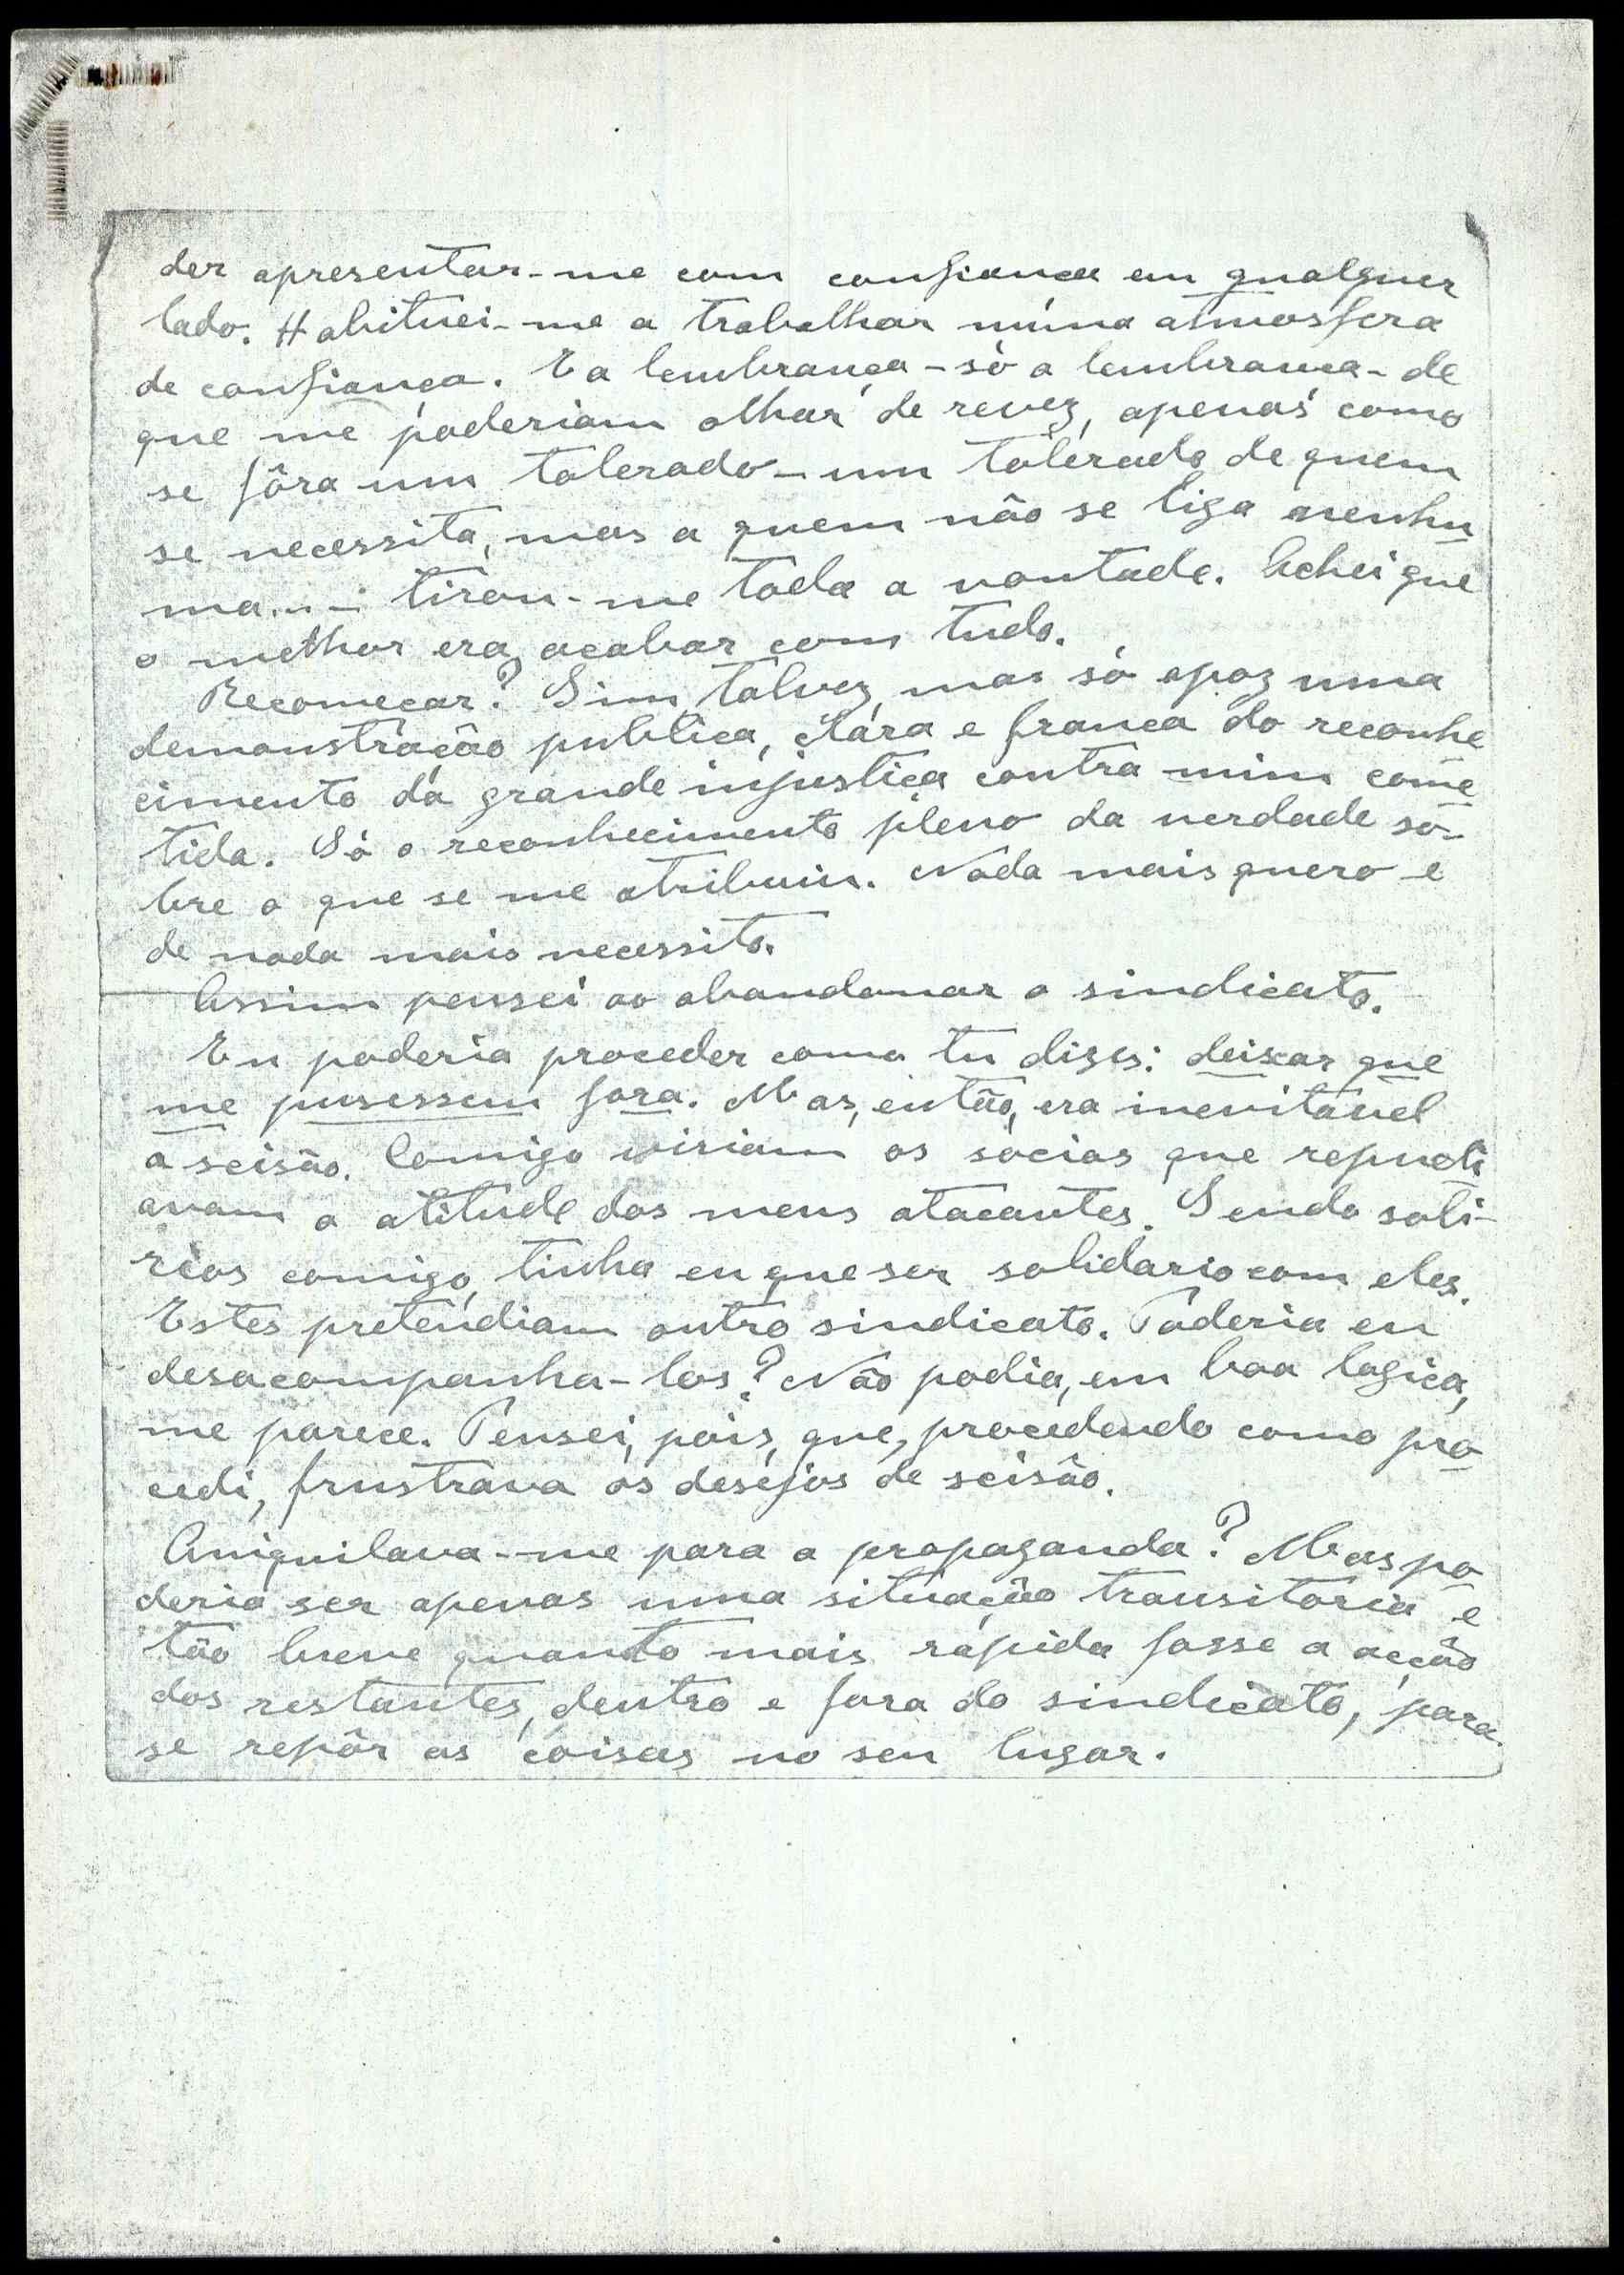 der apresentar-me com confiança em qualquer
lado. Habituei-me a trabalhar núma atmosfera
de confiança. E a lembrança - só a lembrança - de
que me poderiam olhar de revez, apenas como
se fôra um tolerado - um tolerado de quem
se necessita, mas a quem não se liga nenhu
ma... - tirou-me toda a vontade. Achei que
o melhor era acabar com tudo.
Recomeçar? Sim, talvez, mas só apoz uma
demonstração publica, clára e franca do reconhe
cimento da grande injustiça contra mim come
tida. Só o reconhecimento pleno da verdade sô-
bre o que se me atribuiu. Nada mais quero e
de nada mais necessito.
Assim pensei ao abandonar o sindicato.
Eu poderia proceder como tu dizes: deixar que
me pusessem fora. Mas, então, era inevitável
a scisão. Comigo viriam os socios que repudi
avam a atitude dos meus atacantes. Sendo soli-
rios comigo, tinha eu que ser solidario com eles.
Estes pretendiam outro sindicato. Poderia eu
desacompanha-los? Não podia, em boa logica,
me parece. Pensei, pois, que, procedendo como pro
cedi, frustrava os desejos de scisão.
Aniquilava-me para a propaganda? Mas po
deria ser apenas uma situação transitoria e
tão breve quanto mais rápida fosse a acção
dos restantes, dentro e fora do sindicato, para
se repôr as coisas no seu lugar.